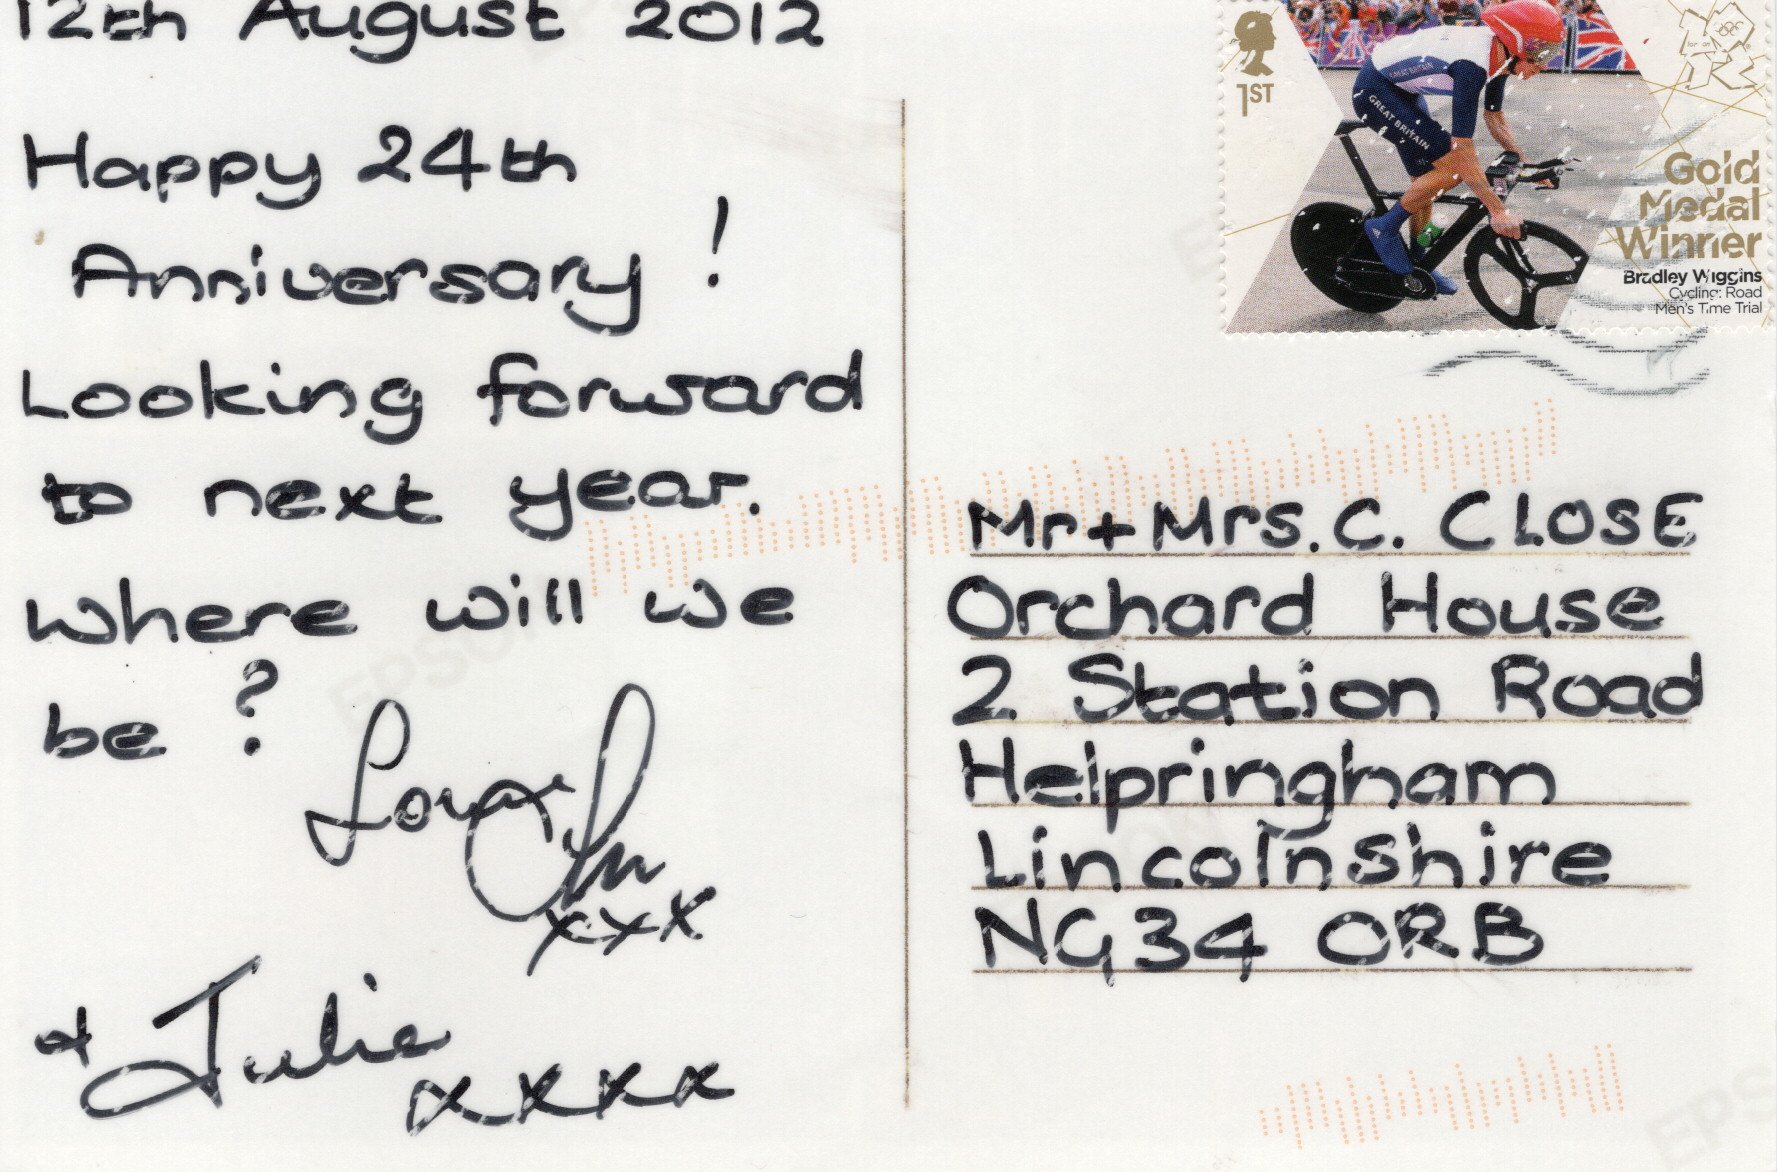 12th August 2012
Happy 24th
Anniversary!
Looking forward
to next year.
Where will we
be?
Love
xxx
+ Julie
xxxx
1ST
GREAT BRITAIN
GREAT BRITAIN
Gold
Medal
Winner
Bradley Wiggins
Cycling: Road
Men's Time Trial
Mr + Mrs. C. CLOSE
Orchard House
2 Station Road
Helpringham
Lincolnshire
NG34 ORB
EPSON
EPS